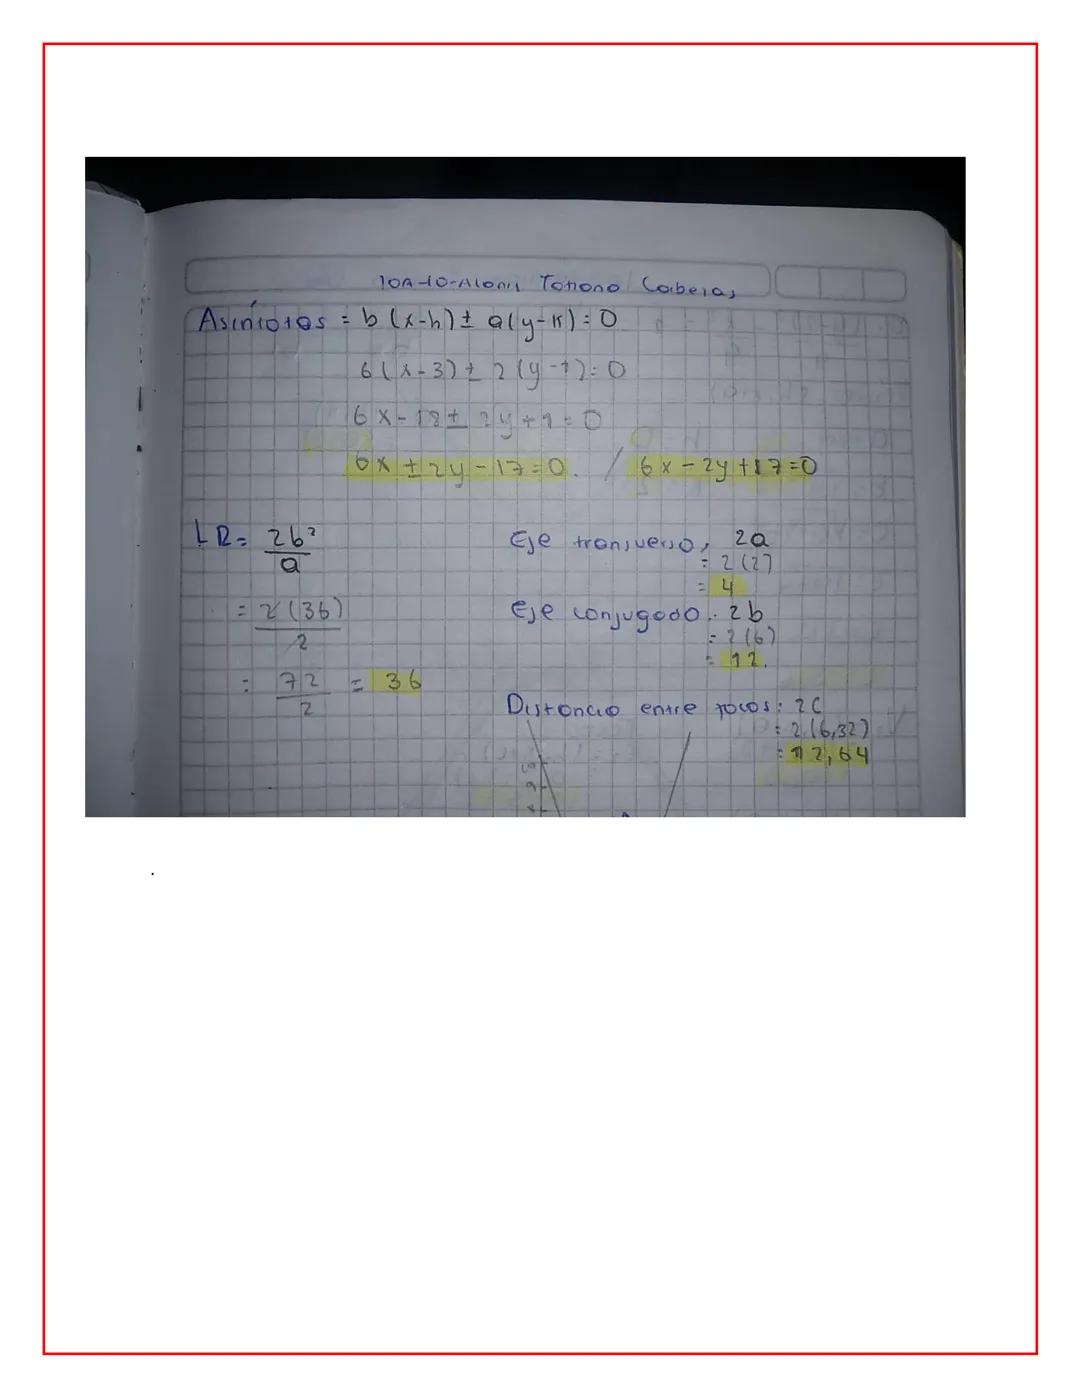 10A-10-Alonis Totiana Caberas
Asíntotas = b (x-h) ± a(y-k) = 0
6(x-3) ± 2(y-1) = 0
6x-18 ± 2y+1 = 0
6x ± 2y - 17 = 0. / 6x - 2y + 17 = 0
LR = 2b²
a
= 2(36)
2
= 72 = 36
2
Eje transverso, 2a
= 2(2)
= 4
Eje conjugado: 2b
= 2(6)
= 12.
Distancia entre focos: 2c
= 2(6,32)
= 12,64